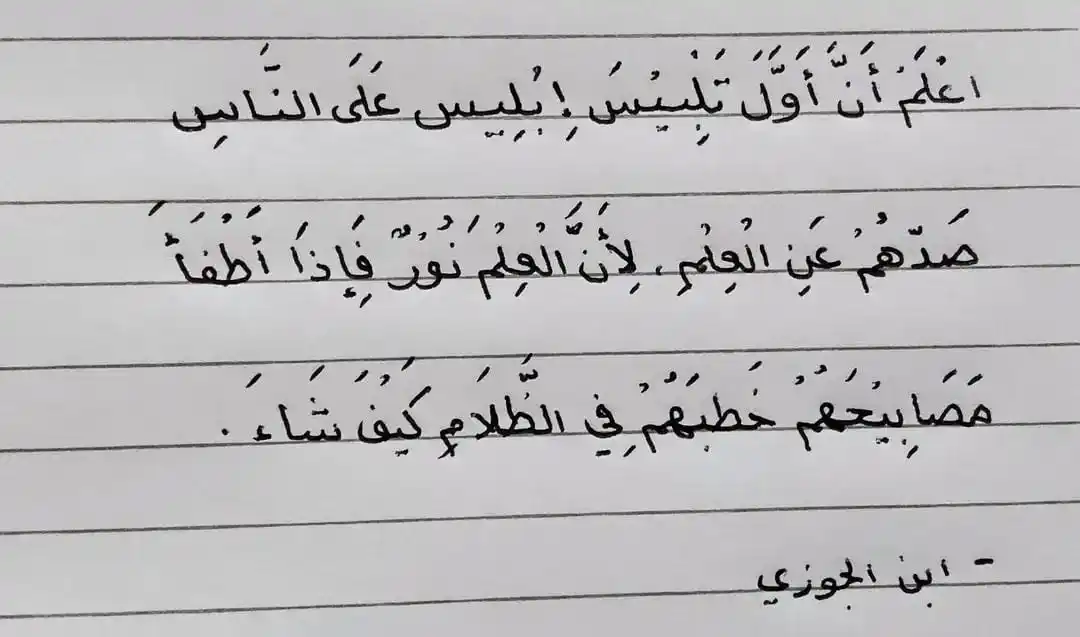 اعْلَمْ أَنَّ أَوَّلَ تَلْبِيْسَ إِبْلِيس عَلَى النَّاسِ
صَدّهُمْ عَنِ الْعِلْمِ، لِأَنَّ الْعِلْمَ نُوْرٌ فَإِذَا أَطْفَأَ
مَصَابِيْحَهُمْ خَطبَهُمْ فِي الظَّلَامِ كَيْفَ شَاءَ.
- ابن الجوزي